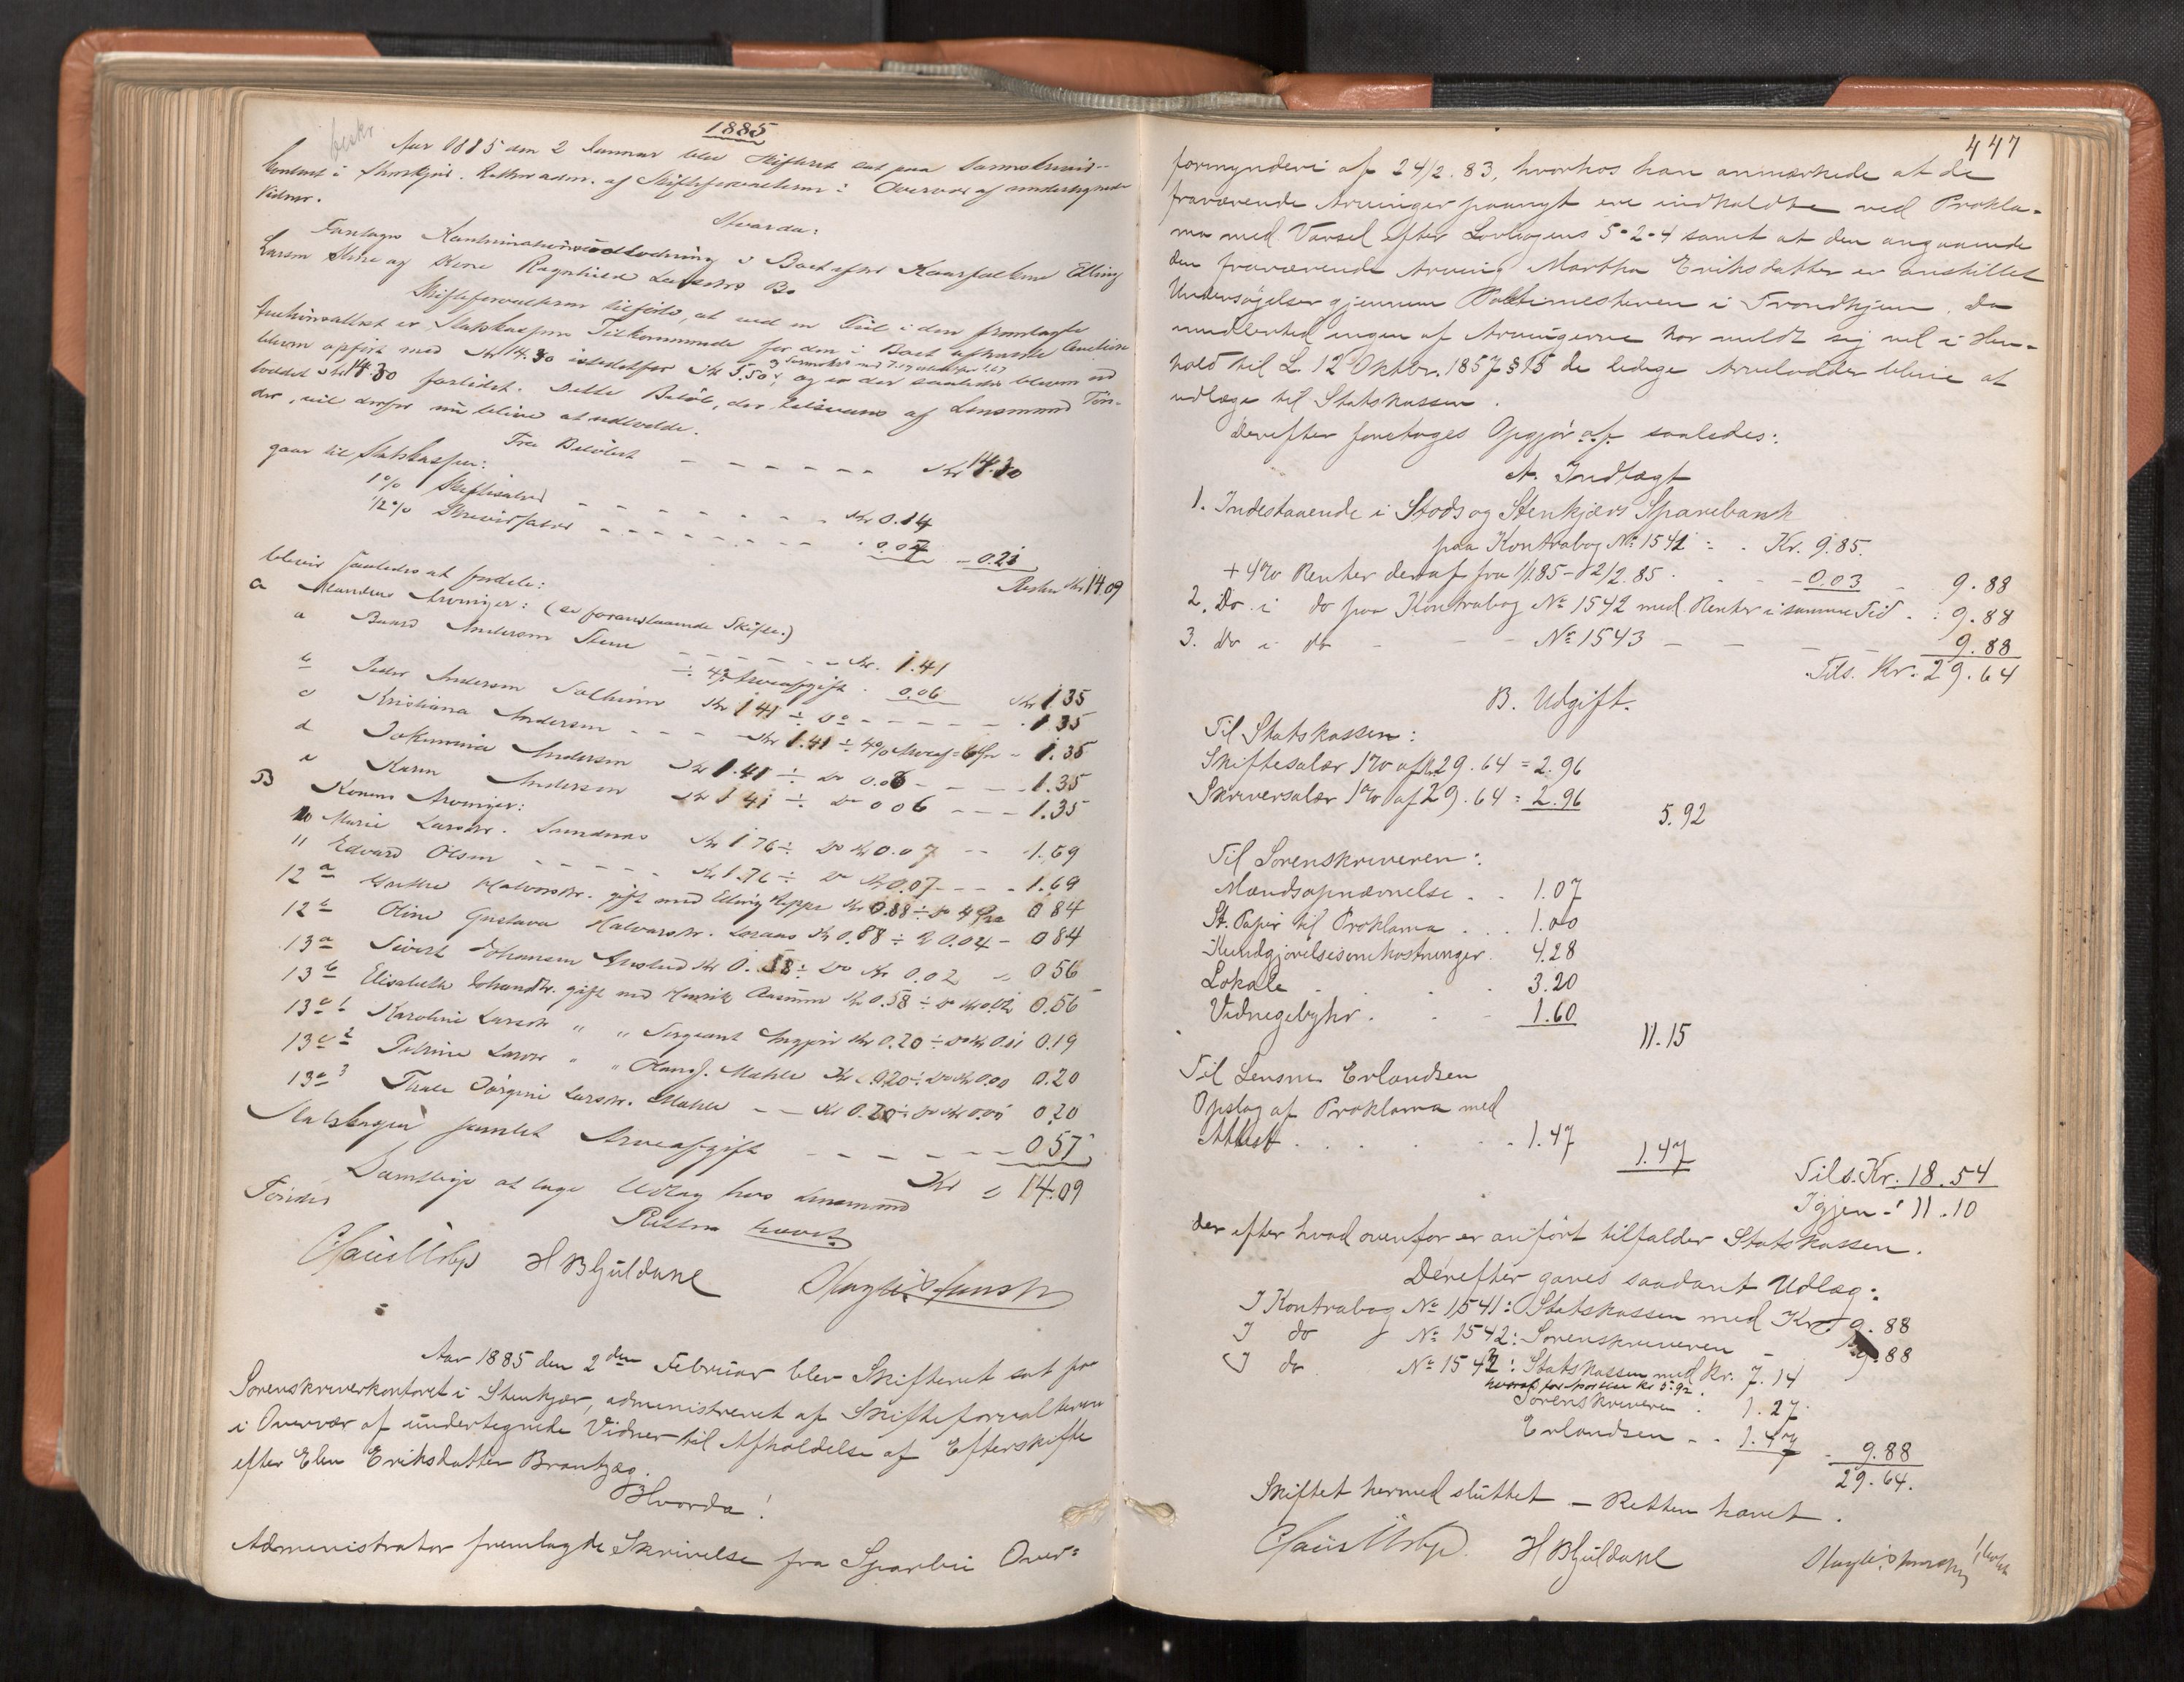 1885
Aar 1885 den 2 Januar blev Skifteret sat paa Sorenskriver-
kontoret i Stenkjær. Retten adm. af Skifteforvalteren i Overvær af undertegnede
Vidner.
Hvorda:
Foretages Kontinuationsudlodning i Boet efter Kaarfolkene Elling
Larsen Stene og Kone Ragnhild Larsdtrs Bo
Skifteforvalteren tilførte, at ved en Feil i den fremlagte
Auktions er Statskassens Tilkommende for den i Boet afholdte Auktion
bleven opført med Kr 14.30 istedetfor Kr 5.50 og er der saaledes bleven ud
loddet Kr 14.30 forlidet. Dette Beløb, der af Lensmand Tøn-
der, vil derfor nu blive at udlodde.
Fra Beløbet Kr 14.30
gaar til Statskassen:
1% Skiftesalær Kr 0.14
1/2% Skriversalær 0.07 - 0.21
Resten Kr 14.09
bliver saaledes at fordele:
A Mandens Arvinger: (se foranstaaende Skifte.)
a Baard Andersen Stene Kr. 1.41
÷ 4% Arveafgift 0.06 Kr 1.35
b Peder Andersen Solheim Kr 1.41 ÷ do - 1.35
c Kristiana Andersen - Kr 1.41 ÷ 4% Arveaf = 6 Øre - 1.35
d Jokumina Andersen Kr 1.41 ÷ do 0.06 - 1.35
e Karen Andersen Kr 1.41 ÷ do 0.06 - 1.35
B Konens Arvinger:
10 Marie Larsdtr. Sundnæs Kr 1.76 ÷ do Kr 0.07 - 1.69
11 Edvard Olsen Kr 1.76 ÷ do Kr 0.07 - 1.69
12 a Halvorsdtr. gift med Elling Kr 0.88 ÷ do 4 Øre 0 84
12 b Oline Gustava Halvorsdtr. Kr 0.88 ÷ do 0.04 - 0 84
13 a Sivert Johansen Kr 0.58 ÷ do Kr 0.02 0 56
13 b Elisabeth Johansdtr. gift med Henrik Kr 0.58 ÷ do Kr 0.02 0.56
13 c 1 Karoline Larsdtr " " Sergeant Kr 0.20 ÷ do Kr 0.01 0.19
13 c 2 Petrine Larsdtr " " Mæhle Kr 0.20 ÷ do Kr 0.00 0.20
13 c 3 Thale Jørgine Larsdtr. Mæhle - Kr 0.20 ÷ do Kr 0.00 0.20
Statskassen samlet Arveafgift 0 57
Kr 14.09
Samtlige at tage Udlag hos Lensmand
Tønder
Retten hævet
H B Guldahl
Aar 1885 den 2den Februar blev Skifteret sat paa
Sorenskriverkontoret i Stenkjær, administreret af Skifteforvalteren
i Overvær af undertegnede Vidner til Afholdelse af Efterskifte
efter Elen Eriksdatter Brantzæg.
Hvorda!
Administrator fremlagde Skrivelse fra Sparbu Over-
447
formynderi af 24/2. 83, hvorhos han anmærkede at de
fraværende Arvinger paanyt ere indkaldte ved Prokla-
ma med Varsel efter Lovbogens 5-2-4 samt at den angaaende
den fraværende Arving Martha Eriksdatter er anstillet
Undersøgelser gjennem Politimesteren i Trondhjem. Da
imidlertid ingen af Arvingerne har meldt sig vil i Hen-
hold til L. 12 Oktbr. 1857 § 15 de ledige Arvelodder blive at
udlægge til Statskassen.
Derefter foretages Opgjør af saaledes:
A. Indtægt
1. Indestaaende i Stods og Stenkjærs Sparebank
paa Kontrabog No 1541 : . Kr. 9.85.
+ 4% Renter deraf fra 1/1.85 - 2/2.85 - 0.03 - 9.88
2. Do i do paa Kontrabog No 1542 med Renter i samme Tid . : 9.88
3. do i do - - No 1543 - - - 9.88
Tils. Kr. 29.64
B. Udgift.
Til Statskassen:
Skiftesalær 1% af Kr 29.64 = 2.96
Skriversalær 1% af 29.64 = 2.96
5.92
Til Sorenskriveren:
Mændsopnævnelse . . 1.07
St. Papir til Proklama . . . 1.00
Kundgjørelsesomkostninger. 4.28
Lokale . . . 3.20
Vidnegebyhr . . - 1.60
11.15
Til Lensm. Erlandsen
Opslag af Proklama med
Attest . . . . . . 1.47 1.47
Tils. Kr. 18.54
Igjen - 11.10
der efter hvad ovenfor er anført tilfalder Statskassen.
Derefter gaves saadant Udlæg:
I Kontrabog No 1541: Statskassen med Kr. 9.88
I do No 1542: Sorenskriveren - 9.88
I do No 1543: Statskassen med Kr. 7.14
hvoraf for Sportler Kr 5.92.
Sorenskriveren . 1.27
Erlandsen - . 1.47 - 9.88
29.64.
Skiftet hermed sluttet — Retten hævet.
H B Guldahl